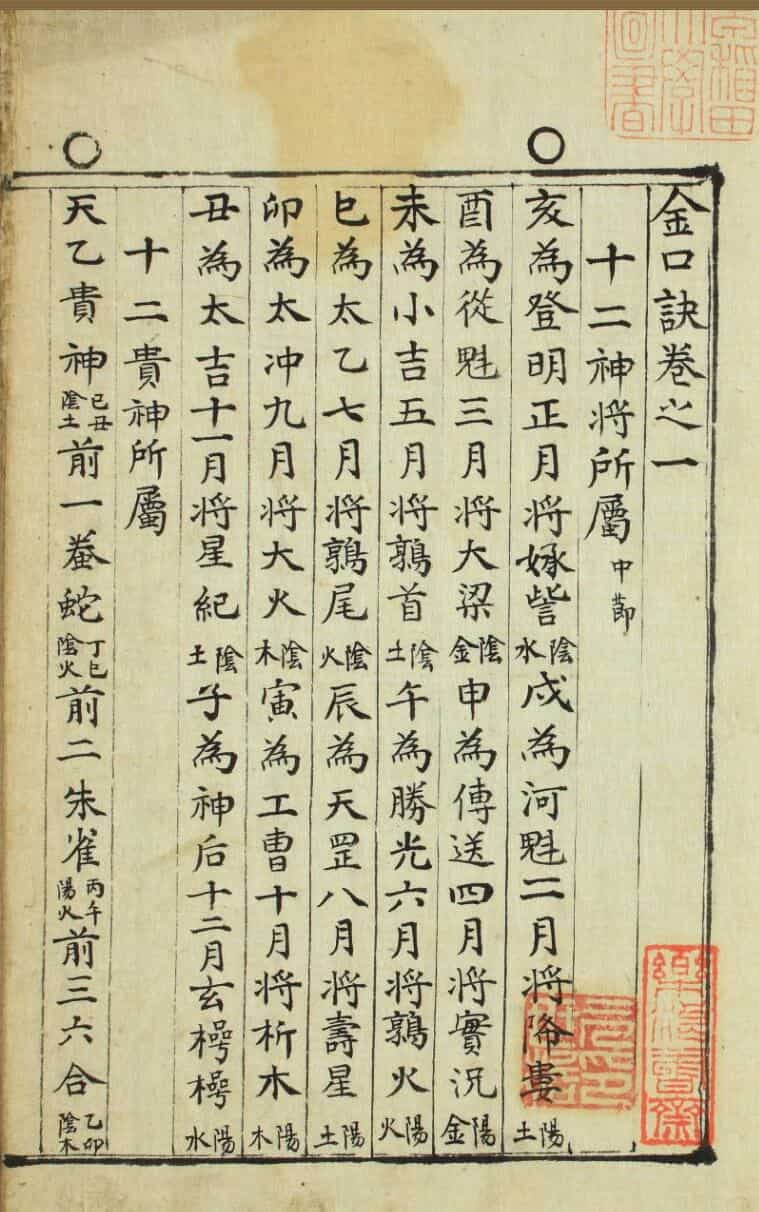 金口訣卷之一
十二神将所屬中莭
亥為登明正月将娵訾陰水戌為河魁二月将降婁陽土
酉為從魁三月将大梁陰金申為傳送四月将實況陽金
未為小吉五月将鶉首陰土午為勝光六月将鶉火陽火
巳為太乙七月将鶉尾陰火辰為天罡八月将壽星陽土
卯為太冲九月将大火陰木寅為工曹十月将析木陽木
丑為太吉十一月将星紀陰土子為神后十二月玄枵枵陽水
十二貴神所屬
天乙貴神己丑陰土前一螣蛇丁巳陰火前二朱雀丙午陽火前三六合乙卯陰木